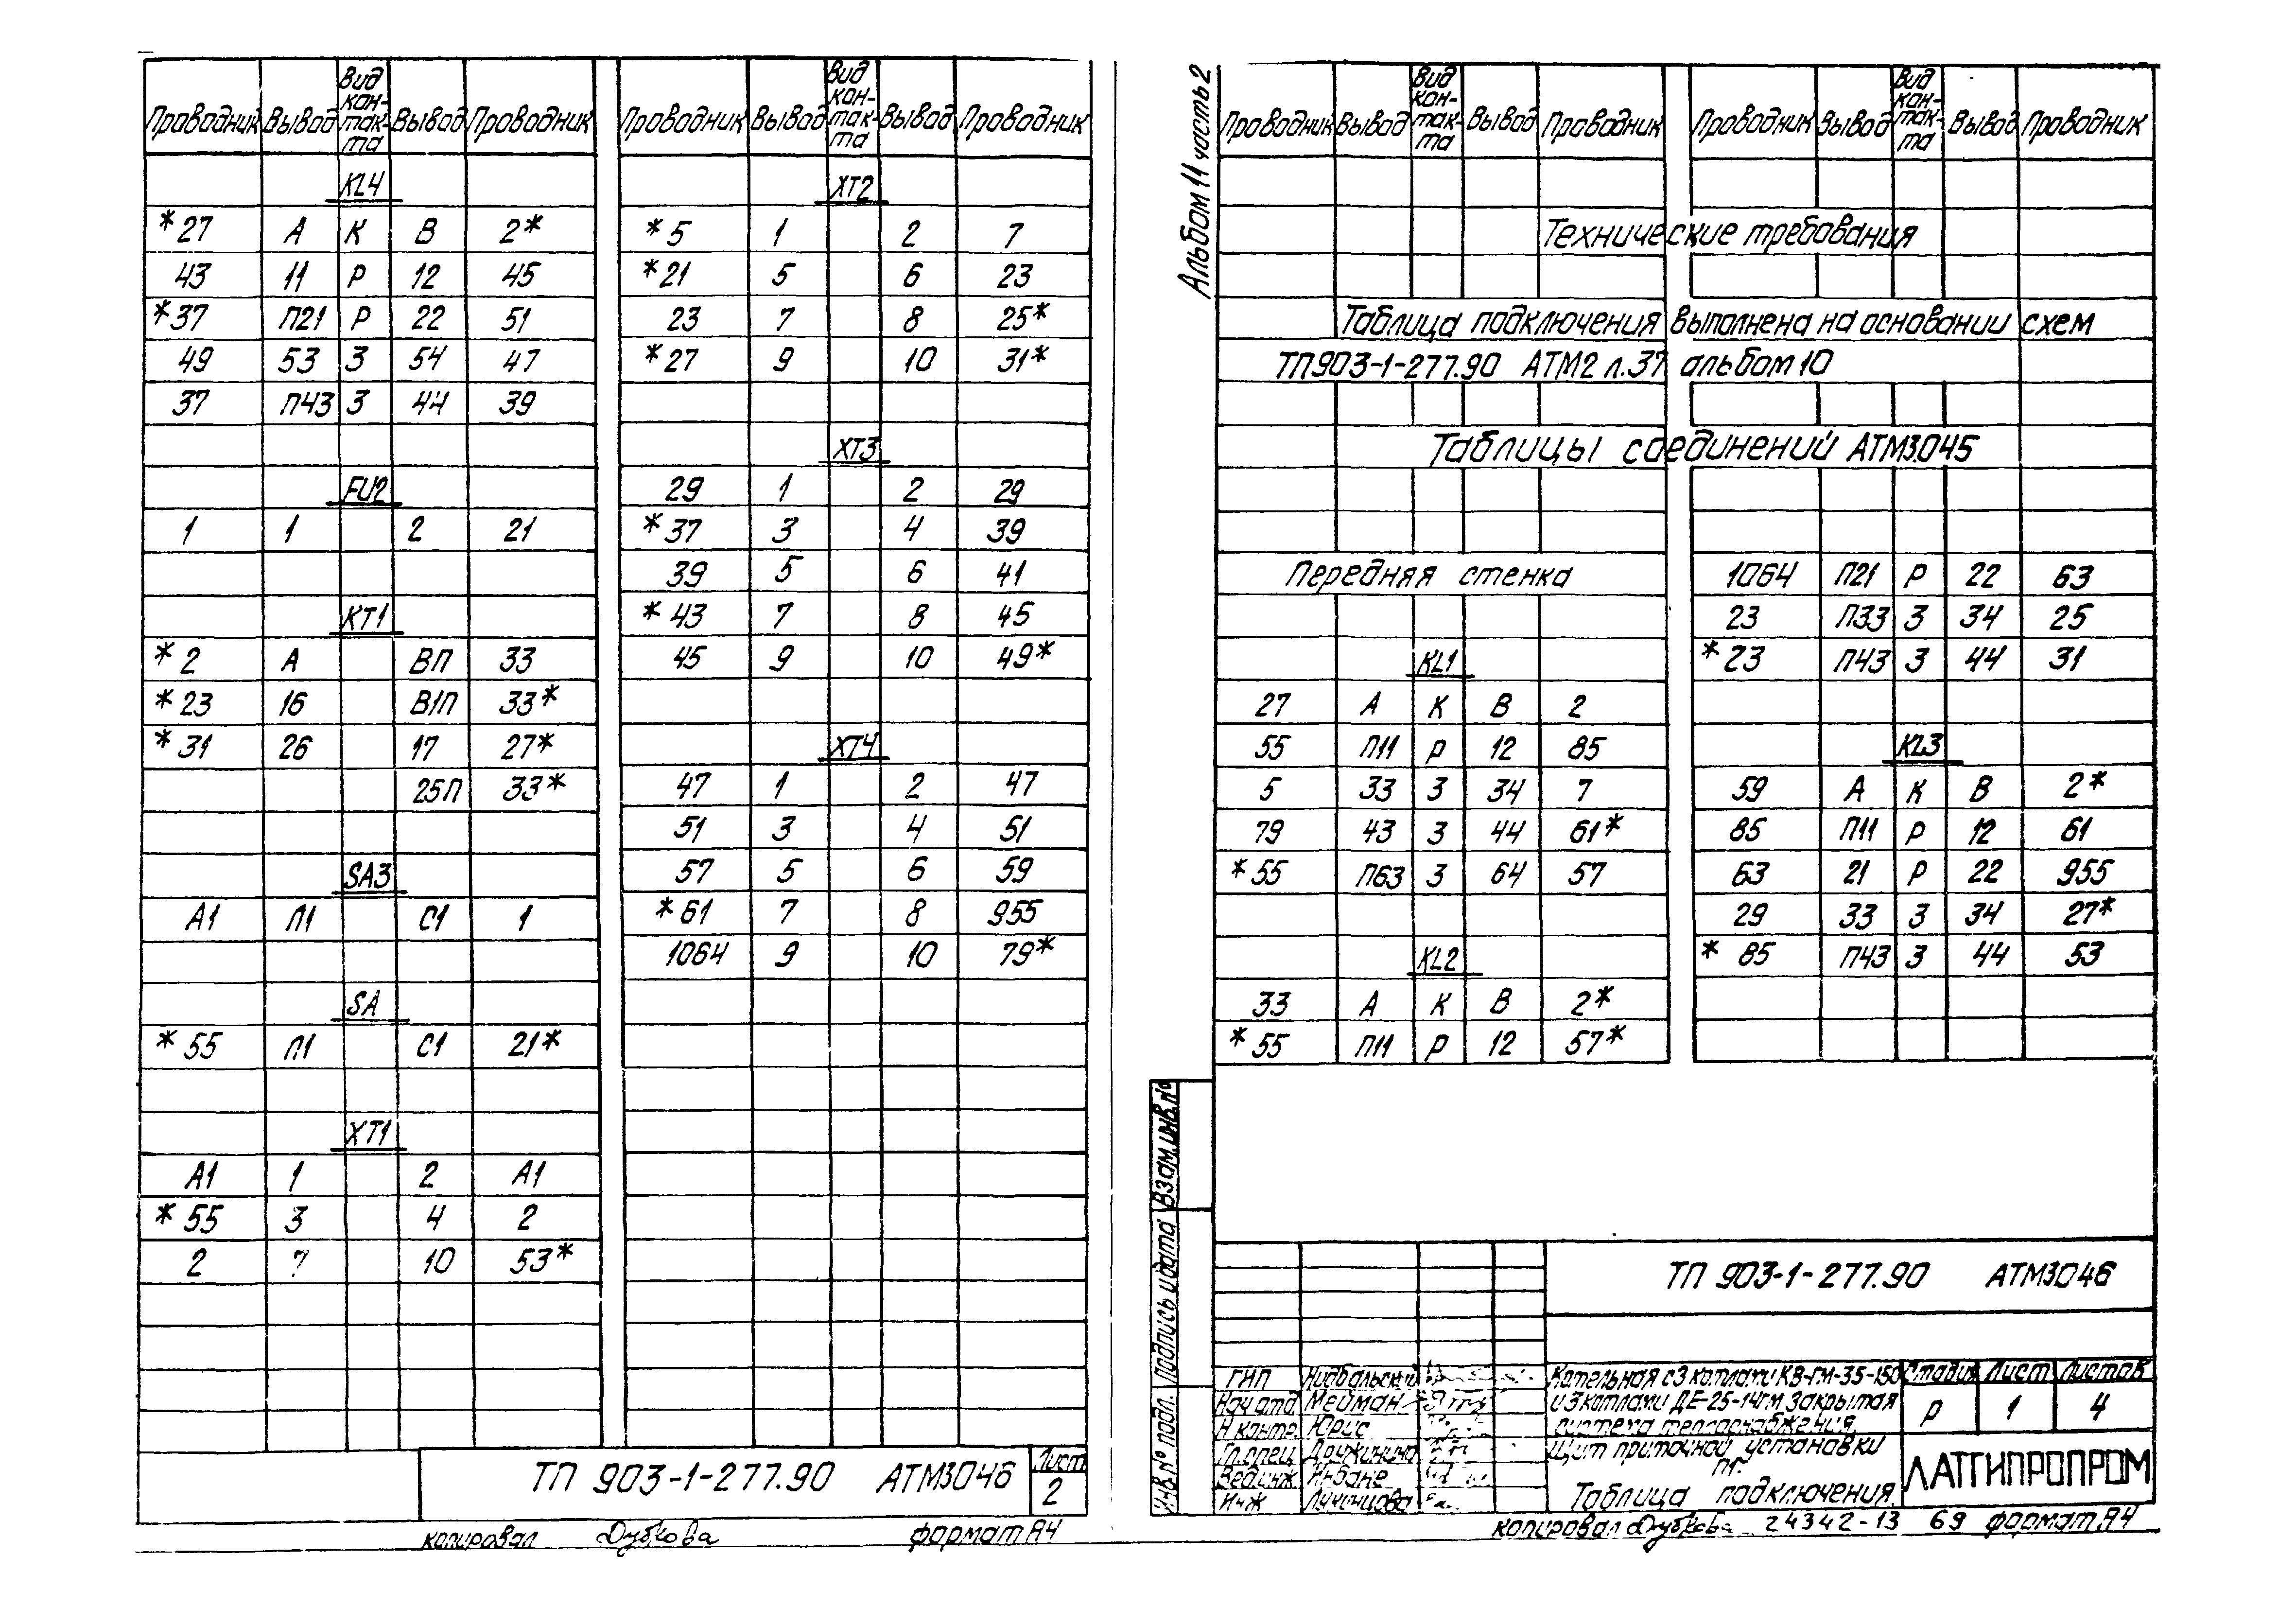 Проводник Вывод Вид кон-так-та Вывод Проводник
KL4
*27 А К В 2*
43 11 Р 12 45
*37 П21 Р 22 51
49 53 З 54 47
37 П43 З 44 39
FU2
1 1 2 21
КТ1
*2 А ВП 33
*23 16 В1П 33*
*31 26 17 27*
25П 33*
SA3
А1 Л1 С1 1
SA
*55 Л1 С1 21*
ХТ1
А1 1 2 А1
*55 3 4 2
2 7 10 53*
Проводник Вывод Вид кон-так-та Вывод Проводник
ХТ2
*5 1 2 7
*21 5 6 23
23 7 8 25*
*27 9 10 31*
ХТ3
29 1 2 29
*37 3 4 39
39 5 6 41
*43 7 8 45
45 9 10 49*
ХТ4
47 1 2 47
51 3 4 51
57 5 6 59
*61 7 8 955
1064 9 10 79*
ТП 903-1-277.90 АТМ3046
Лист
2
копировал Дубкова формат А4
Альбом 11 часть 2
Проводник Вывод Вид кон-так-та Вывод Проводник
Проводник Вывод Вид кон-так-та Вывод Проводник
Технические требования
Таблица подключения выполнена на основании схем
ТП903-1-277.90 АТМ2 л.37 альбом 10
Таблицы соединений АТМ3.045
Передняя стенка
KL1
27 А К В 2
55 П11 Р 12 85
5 33 З 34 7
79 43 З 44 61*
*55 П63 З 64 57
KL2
33 А К В 2*
*55 П11 Р 12 57*
1064 П21 Р 22 63
23 П33 З 34 25
*23 П43 З 44 31
KL3
59 А К В 2*
85 П11 Р 12 61
63 21 Р 22 955
29 33 З 34 27*
*85 П43 З 44 53
Взам.инв.№
Подпись и дата
Инв.№ подл.
ТП 903-1-277.90 АТМ3046
ГИП Нидбальский
Нач отд. Мейман
Н контр. Юрис
Гл.спец Дружинина
Вед.инж.
Инж
Котельная с 3 котлами КВ-ГМ-35-150
и 3 котлами ДЕ-25-14ГМ Закрытая
система теплоснабжения
Щит приточной установки
П1.
Таблица подключения
Стадия Лист Листов
Р 1 4
ЛАТГИПРОПРОМ
копировал Дубкова 24342-13 69 формат А4